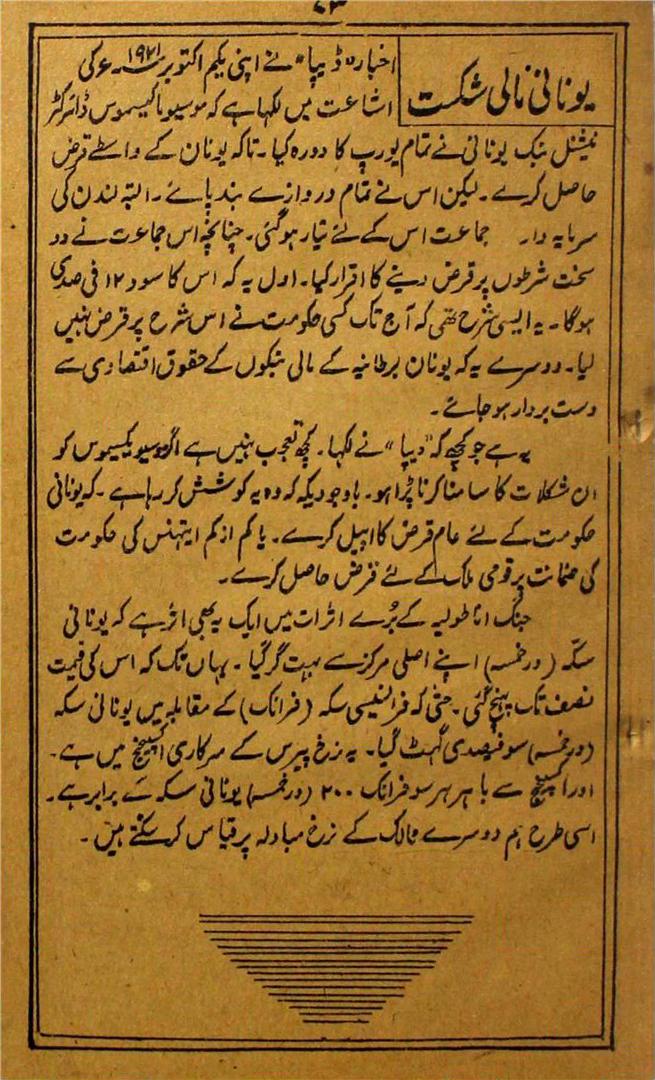 ۲۳
یونانی مالی شکست
اخبار "ڈیپا" نے اپنی یکم اکتوبر ۱۹۲۱ء کی
اشاعت میں لکہا ہے کہ موسیو ماکسیموس ڈائرکٹر
نیشنل بنک یونانی نے تمام یورپ کا دورہ کیا۔ تاکہ یونان کے واسطے قرض
حاصل کرے۔ لیکن اس نے تمام دروازے بند پائے۔ البتہ لندن کی
سرمایہ دار جماعت اس کے لئے تیار ہوگئی۔ چنانچہ اس جماعت نے دو
سخت شرطوں پر قرض دینے کا اقرار کیا۔ اول یہ کہ اس کا سود ۱۲ فی صدی
ہوگا۔ یہ ایسی شرح تھی کہ آج تک کسی حکومت نے اس شرح پر قرض نہیں
لیا۔ دوسرے یہ کہ یونان برطانیہ کے مالی بنکوں کے حقوق اقتصادی سے
دست بردار ہو جائے۔
یہ ہے جو کچھ کہ "دیپا" نے لکہا۔ کچھ تعجب نہیں ہے اگر موسیو یکسیموس کو
ان شکلات کا سامنا کرنا پڑا ہو۔ باوجودیکہ کہ وہ یہ کوشش کر رہا ہے۔ کہ یونانی
حکومت کے لئے عام قرض کا اپیل کرے۔ یا کم از کم ایتھنس کی حکومت
کی ضمانت پر قومی ملک کے لئے قرض حاصل کرے۔
جنگ اناطولیہ کے بُرے اثرات میں ایک یہ بھی اثر ہے کہ یونانی
سکّہ (درخمہ) اپنے اصلی مرکز سے بہت گر گیا۔ یہاں تک کہ اس کی قیمت
نصف تک پہنچ گئی۔ حتیٰ کہ فرانسیسی سکہ (فرانک) کے مقابلہ میں یونانی سکہ
(درخمہ) سو فیصدی گہٹ گیا۔ یہ نرخ پیرس کے سرکاری اکسچینج میں ہے۔
اور اکسچینج سے باہر ہر سو فرانک ۲۰۰ (درخمہ) یونانی سکہ کے برابر ہے۔
اسی طرح ہم دوسرے ممالک کے نرخ مبادلہ پر قیاس کر سکتے ہیں۔